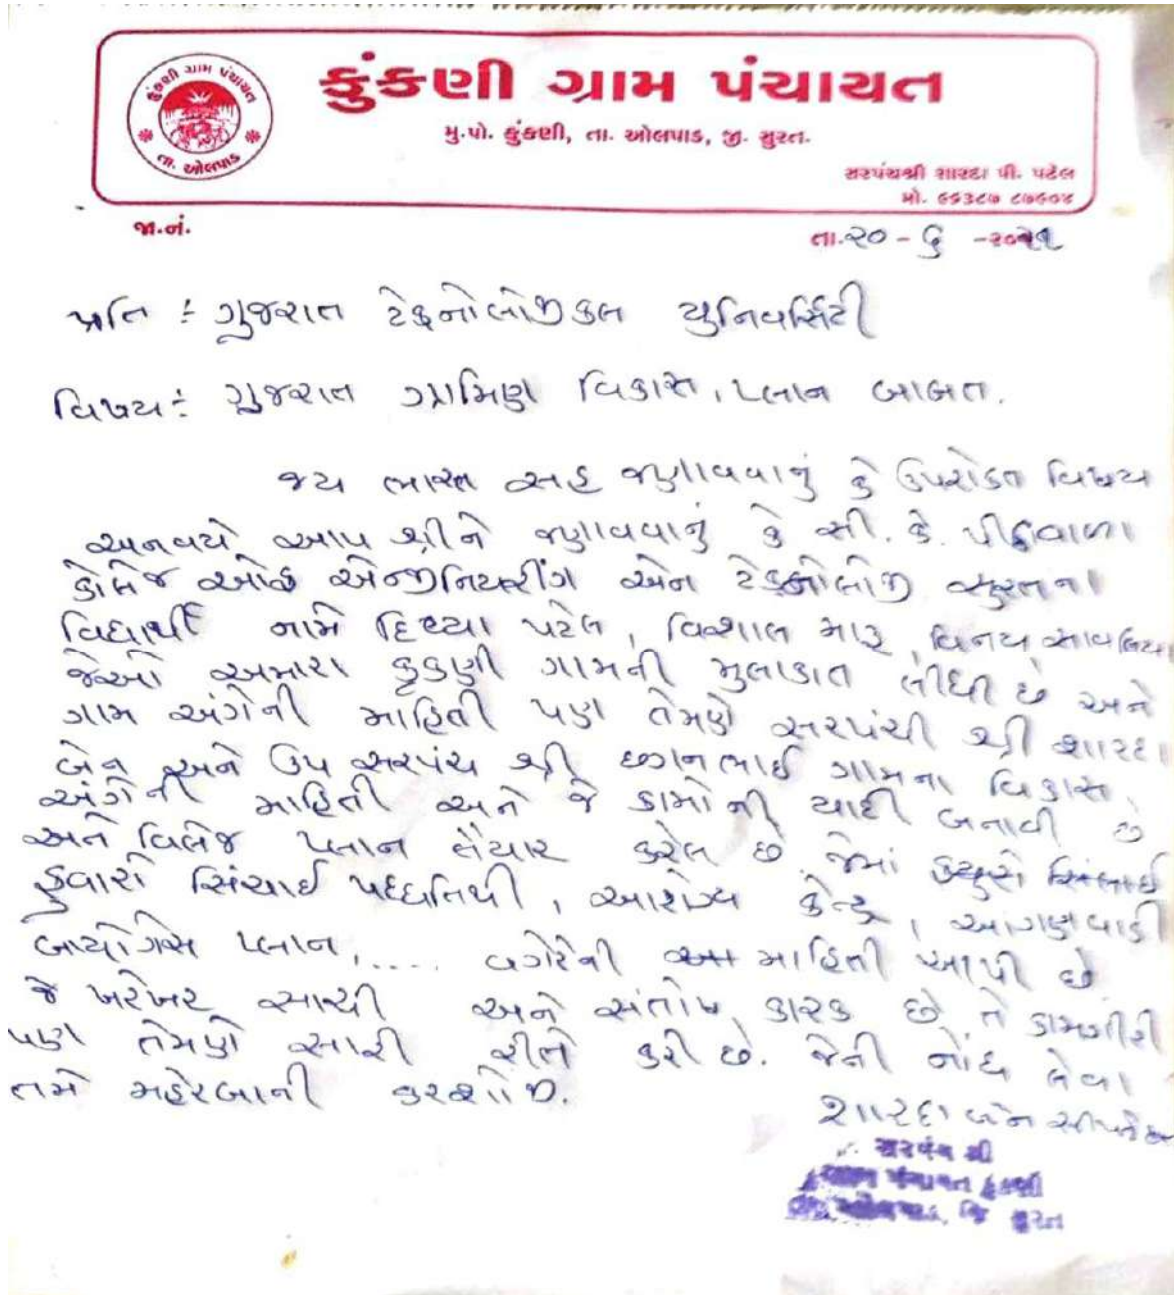 કુંકણી ગ્રામ પંચાયત
તા. ઓલપાડ
કુંકણી ગ્રામ પંચાયત
મુ.પો. કુંકણી, તા. ઓલપાડ, જી. સુરત.
સરપંચશ્રી શારદા પી. પટેલ
મો. ૯૬૩૮૭ ૮૭૯૦૪
જા.નં.
તા.૨૦ - ૬ -૨૦૨૧
પ્રતિ : ગુજરાત ટેકનોલોજીકલ યુનિવર્સિટી
વિષય : ગુજરાત ગ્રામિણ વિકાસ, પ્લાન બાબત.
જય ભારત સહ જણાવવાનું કે ઉપરોક્ત વિષય
અનવયે આપ શ્રીને જણાવવાનું કે સી. કે. પીઠાવાળા
કોલેજ ઓફ એન્જીનિયરીંગ એન ટેકનોલોજી સુરતના
વિદ્યાર્થી નામે દિવ્યા પટેલ, વિશાલ મારૂ, વિનય સાવલિયા
જેઓ અમારા કુકણી ગામની મુલાકાત લીધી છે અને
ગામ અંગેની માહિતી પણ તેમણે સરપંચી શ્રી શારદા
બેન અને ઉપ સરપંચ શ્રી છગનભાઈ ગામના વિકાસ
અંગેની માહિતી અને જે કામોની યાદી બનાવી છે
અને વિલેજ પ્લાન તૈયાર કરેલ છે. જેમાં
ફુવારો સિંચાઈ પધ્ધતિથી, આરોગ્ય કેન્દ્ર, આંગણવાડી
બાયોગેસ પ્લાન, .... વગેરેની માહિતી આપી છે
જે ખરેખર સાચી અને સંતોષ કારક છે, તે કામગીરી
પણ તેમણે સારી રીતે કરી છે. જેની નોંધ લેવા
તમે મહેરબાની કરશોજી.
શારદા બેન
સરપંચ શ્રી
પંચાયત કુંકણી
જિ સુરત